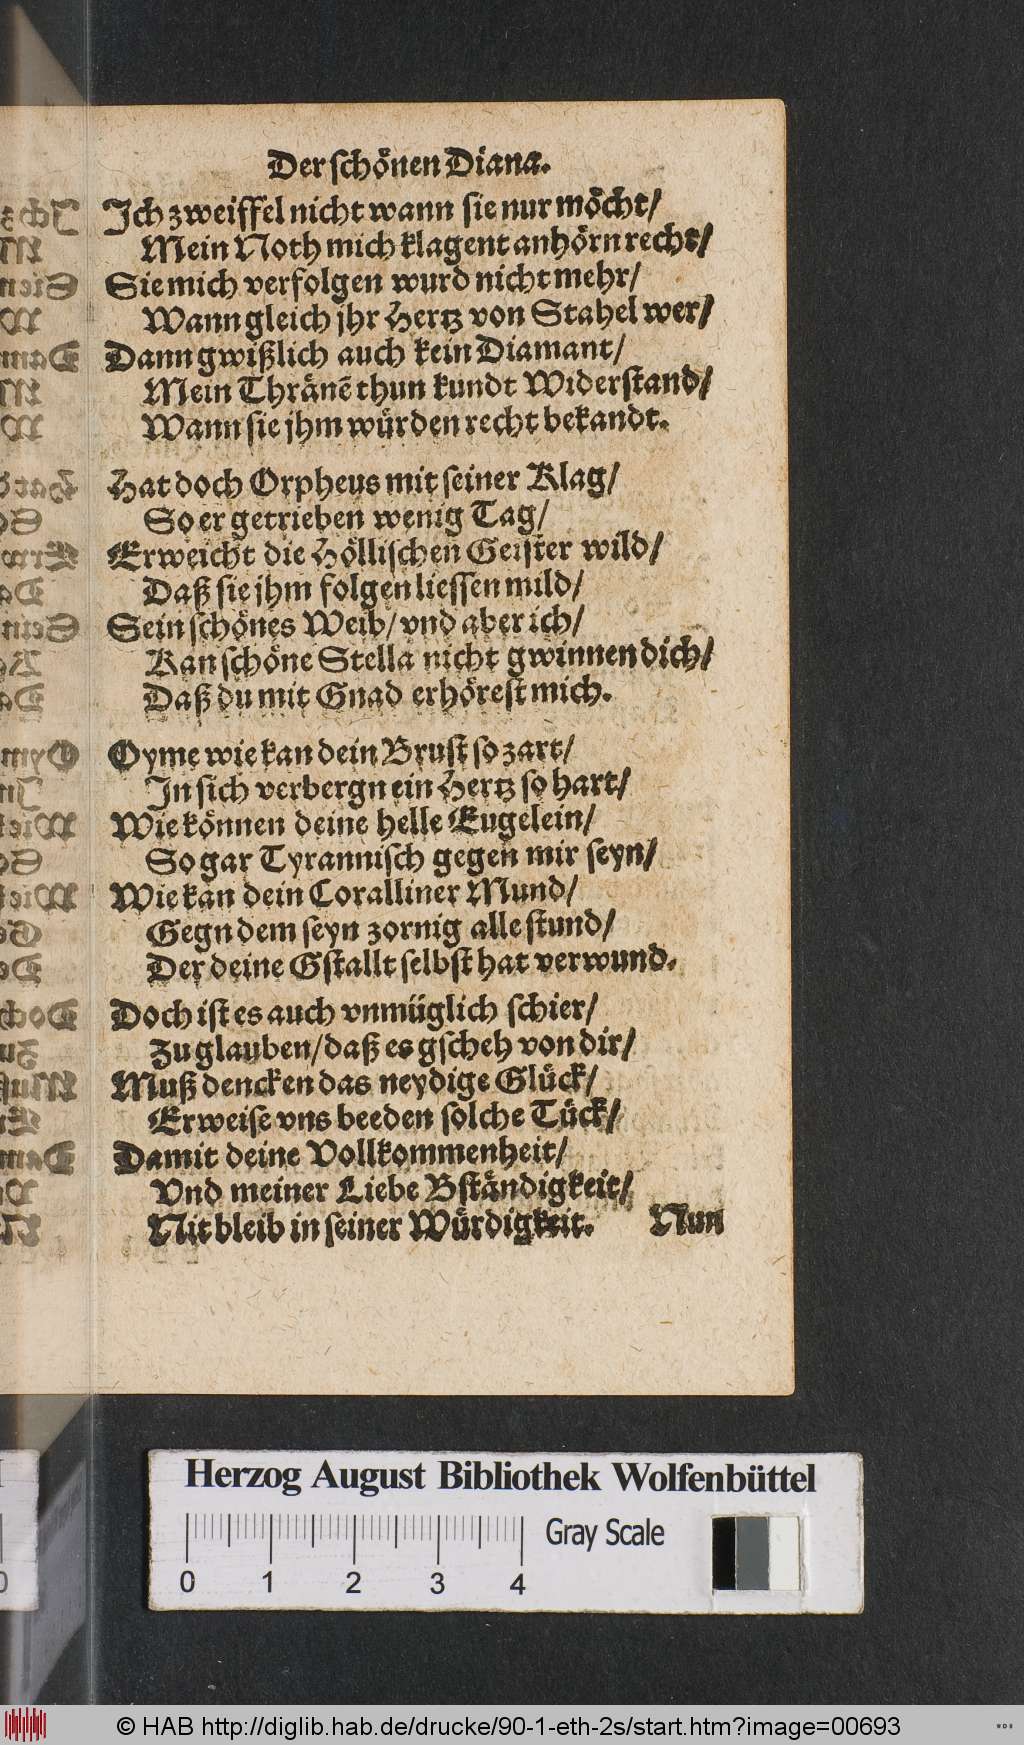 Der schönen Diana.
Ich zweiffel nicht wann sie nur möcht/
Mein Noth mich klagent anhörn recht/
Sie mich verfolgen wurd nicht mehr/
Wann gleich jhr Hertz von Stahel wer/
Dann gwißlich auch kein Diamant/
Mein Thränē thun kundt Widerstand/
Wann sie jhm würden recht bekandt.
Hat doch Orpheus mit seiner Klag/
So er getrieben wenig Tag/
Erweicht die Höllischen Geister wild/
Daß sie jhm folgen liessen mild/
Sein schönes Weib/ vnd aber ich/
Kan schöne Stella nicht gwinnen dich/
Daß du mit Gnad erhörest mich.
Oyme wie kan dein Brust so zart/
In sich verbergn ein Hertz so hart/
Wie können deine helle Eugelein/
So gar Tyrannisch gegen mir seyn/
Wie kan dein Coralliner Mund/
Gegn dem seyn zornig alle stund/
Der deine Gstallt selbst hat verwund.
Doch ist es auch vnmüglich schier/
Zu glauben/ daß es gscheh von dir/
Muß dencken das neydige Glück/
Erweise vns beeden solche Tück/
Damit deine Vollkommenheit/
Vnd meiner Liebe Bständigkeit/
Nit bleib in seiner Würdigkeit. Nun
Herzog August Bibliothek Wolfenbüttel
Gray Scale
0 1 2 3 4
© HAB http://diglib.hab.de/drucke/90-1-eth-2s/start.htm?image=00693